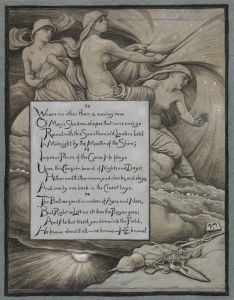 We are no other than a moving row
Of Magic Shadow-shapes that come and go
Round with the Sun-illumin'd Lantern held
In Midnight by the Master of the Show;
Impotent Pieces of the Game He plays
Upon this Chequer-board of Nights and Days;
Hither and thither moves, and checks, and slays,
And one by one back in the Closet lays.
The Ball no question makes of Ayes and Noes,
But Right or Left as strikes the Player goes;
And He that toss'd you down into the Field,
He knows about it all — He knows — HE knows!